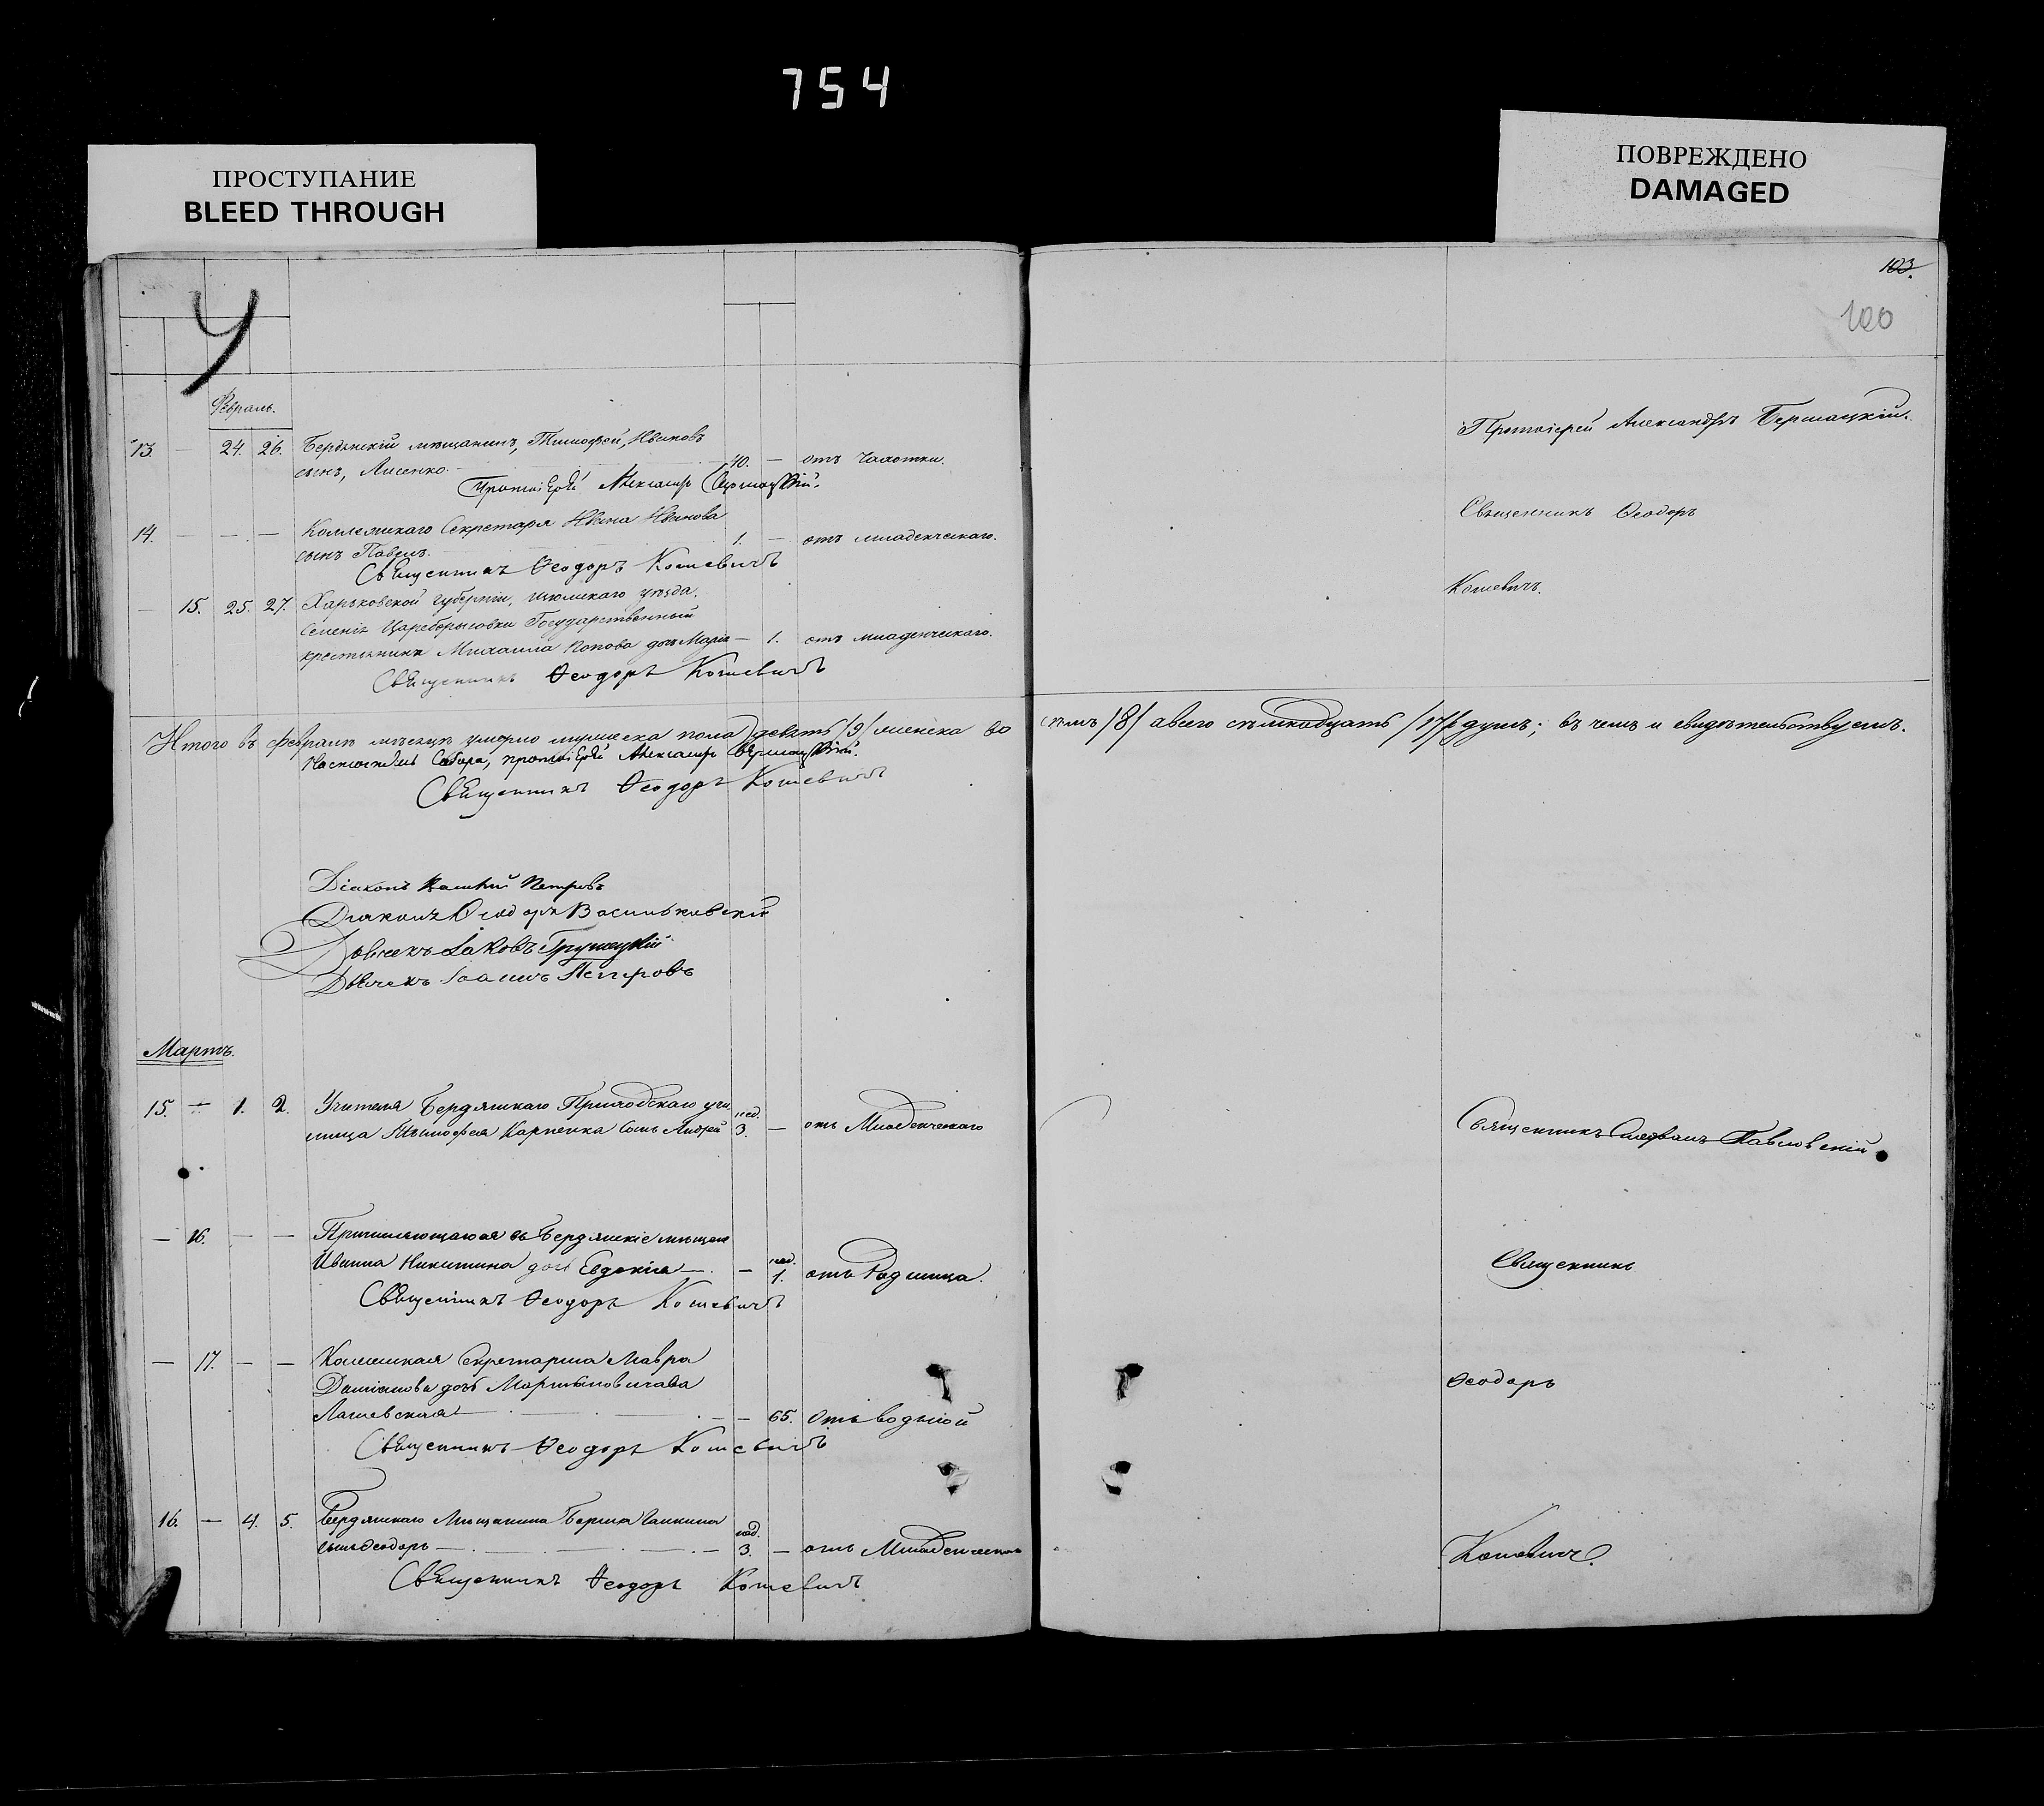 754
ПРОСТУПАНИЕ
BLEED THROUGH
ПОВРЕЖДЕНО
DAMAGED
103.
100
У
Февраль.
13. — 24. 26. Бердянскій мѣщанинъ, Тимофей, Ивановъ
сынъ, Лисенко. 40. — отъ чахотки.
Протоіерей Александръ
Протоіерей Александръ
14. — — — Коллежскаго Секретаря Ивана Иванова
сынъ Павелъ. 1. — отъ младенческаго.
Священникъ Ѳеодоръ Кошевичъ
Священникъ Ѳеодоръ
Кошевичъ.
— 15. 25. 27. Харьковской губерніи, Изюмскаго уѣзда,
Селенія Цареборысовки Государственный
крестьянина Михаила Попова дочь Марія — 1. отъ младенческаго.
Священникъ Ѳеодоръ Кошевичъ
Итого въ февралѣ мѣсяцѣ умерло мужеска пола девять /9/ женска во
семь /8/ а всего семнадцать /17/ душъ; въ чемъ и свидѣтельствуемъ.
Настоятель Собора, протоіерей Александръ
Священникъ Ѳеодоръ Кошевичъ
Діаконъ Петровъ
Діаконъ Ѳеодоръ Васильковскій
Дьячекъ Іаковъ Грушецкій
Дьячекъ Іоаннъ Петровъ
Мартъ.
15. — 1. 2. Учителя Бердянскаго Приходскаго учи
лища Тимофея Карпенка Сынъ Андрей нед. 3. — отъ Младенческаго
Священникъ Стефанъ Павловскій
— 16. — — Причисляющагося въ Бердянскіе мѣщане
Ивана Никитина дочь Евдокія — нед. 1. отъ Родимца.
Священникъ Ѳеодоръ Кошевичъ
Священникъ
— 17. — — Коллежская Секретарша Мавра
Даміанова дочь
— 65. Отъ водяной
Священникъ Ѳеодоръ Кошевичъ
Ѳеодоръ
16. — 4. 5. Бердянскаго Мѣщанина
сынъ Ѳеодоръ — нед. 3. — отъ Младенческаго
Священникъ Ѳеодоръ Кошевичъ
Кошевичъ.